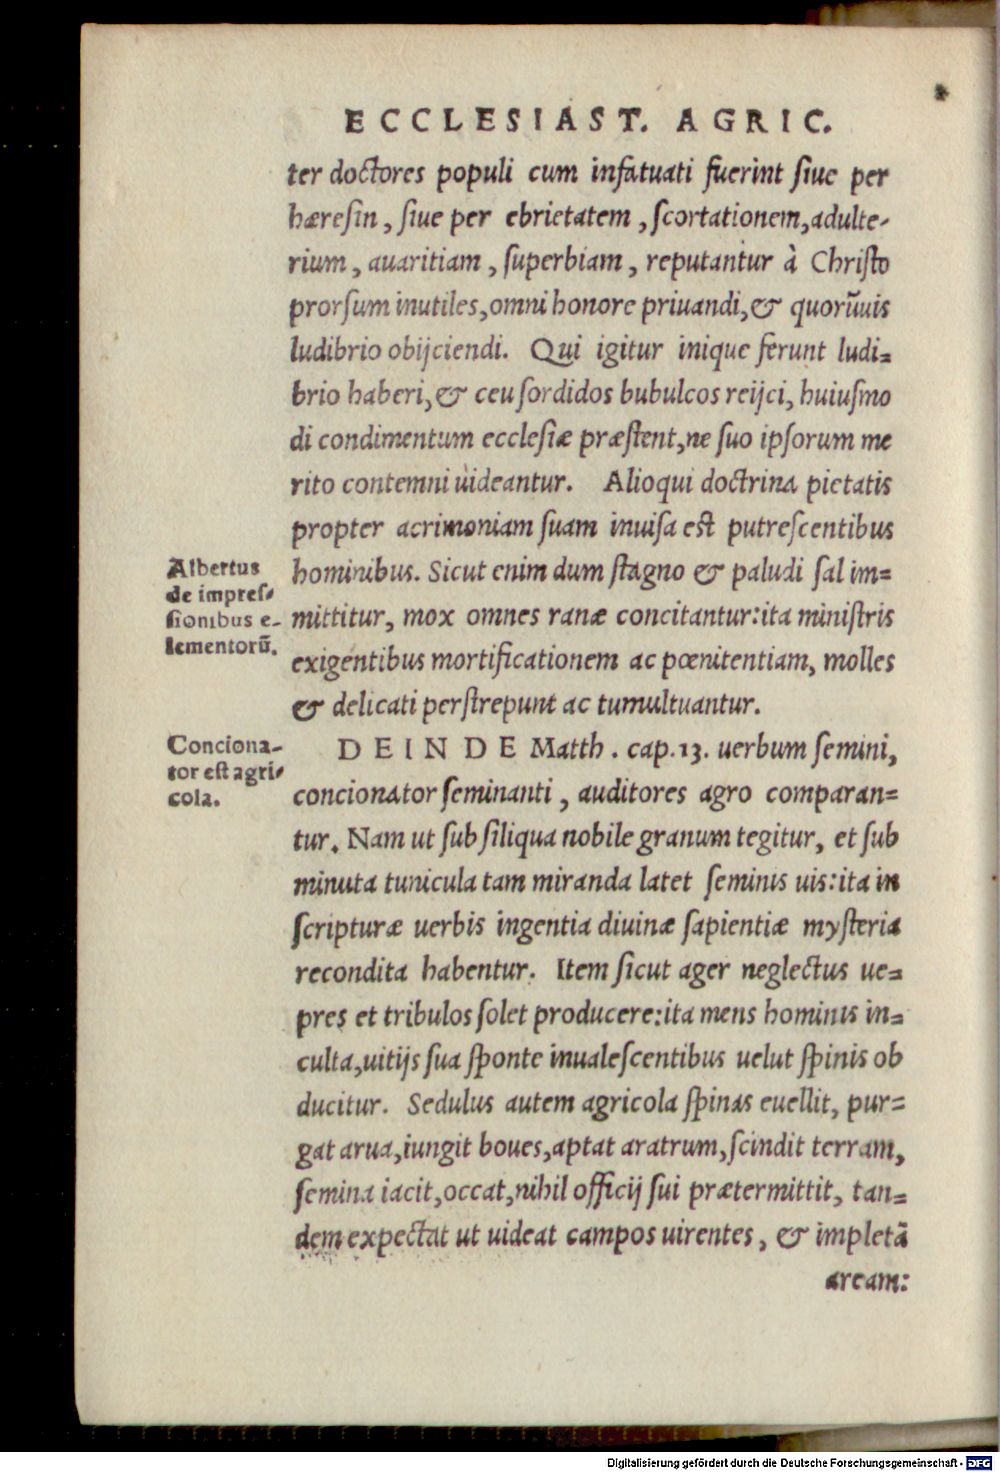 ECCLESIAST. AGRIC.
ter doctores populi cum infatuati fuerint ſiue per
hæreſin, ſiue per ebrietatem, ſcortationem, adulte-
rium, auaritiam, ſuperbiam, reputantur à Chriſto
prorſum inutiles, omni honore priuandi, & quorũuis
ludibrio obijciendi. Qui igitur inique ferunt ludi=
brio haberi, & ceu ſordidos bubulcos reijci, huiuſmo
di condimentum eccleſiæ præſtent, ne ſuo ipſorum me
rito contemni uideantur. Alioqui doctrina pietatis
propter acrimoniam ſuam inuiſa eſt putreſcentibus
hominibus. Sicut enim dum ſtagno & paludi ſal im=
mittitur, mox omnes ranæ concitantur: ita miniſtris
exigentibus mortificationem ac pœnitentiam, molles
& delicati perſtrepunt ac tumultuantur.
Albertus
de impreſ-
ſionibus e-
lementorũ.
DEINDE Matth. cap. 13. uerbum ſemini,
concionator ſeminanti, auditores agro comparan=
tur. Nam ut ſub ſiliqua nobile granum tegitur, et ſub
minuta tunicula tam miranda latet ſeminis uis: ita in
ſcripturæ uerbis ingentia diuinæ ſapientiæ myſteria
recondita habentur. Item ſicut ager neglectus ue=
pres et tribulos ſolet producere: ita mens hominis in=
culta, uitijs ſua ſponte inualeſcentibus uelut ſpinis ob
ducitur. Sedulus autem agricola ſpinas euellit, pur=
gat arua, iungit boues, aptat aratrum, ſcindit terram,
ſemina iacit, occat, nihil officij ſui prætermittit, tan=
dem expectat ut uideat campos uirentes, & impletã
aream:
Conciona-
tor eſt agri-
cola.
Digitalisierung gefördert durch die Deutsche Forschungsgemeinschaft - DFG